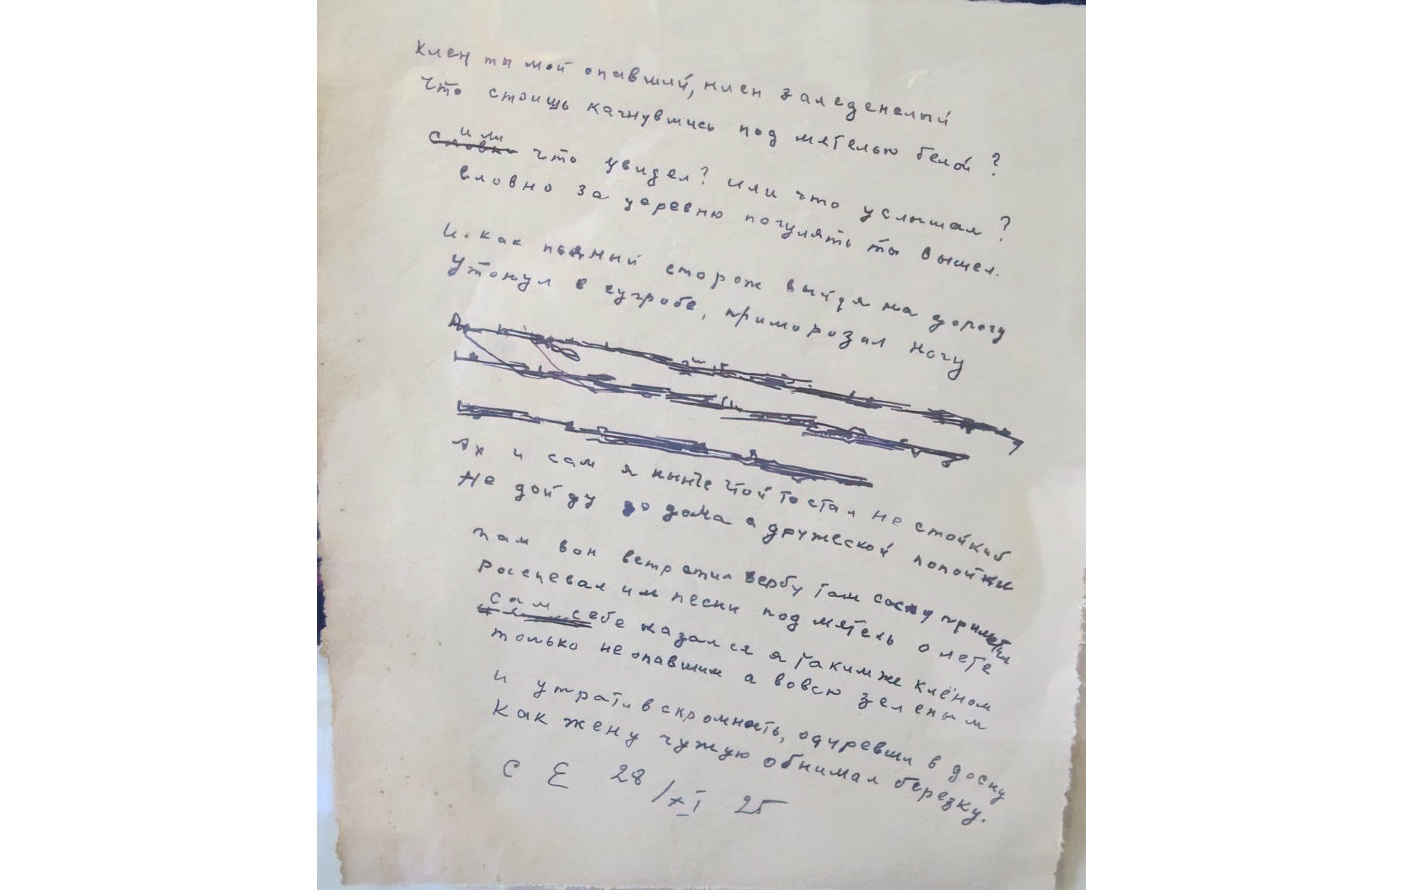 Клен ты мой опавший, клен заледенелый
Что стоишь качнувшись под мятелью белой?
или
Словно что увидел? или что услышал?
вловно за деревню погулять ты вышел.
И как пьяный сторож выйдя на дорогу
Утонул в сугробе, приморозил ногу
Ах и сам я нынче чтой то стал не стойкий
Не дойду до дома с дружеской попойки
Там вон встретил вербу там сосну приметил
Распевал им песни под мятель о лете
Сам себе казался я таким же клёном
только не опавшим а вовсю зеленым
и утратив скромность, одуревши в доску
Как жену чужую обнимал березку.
С Е 28/XI 25